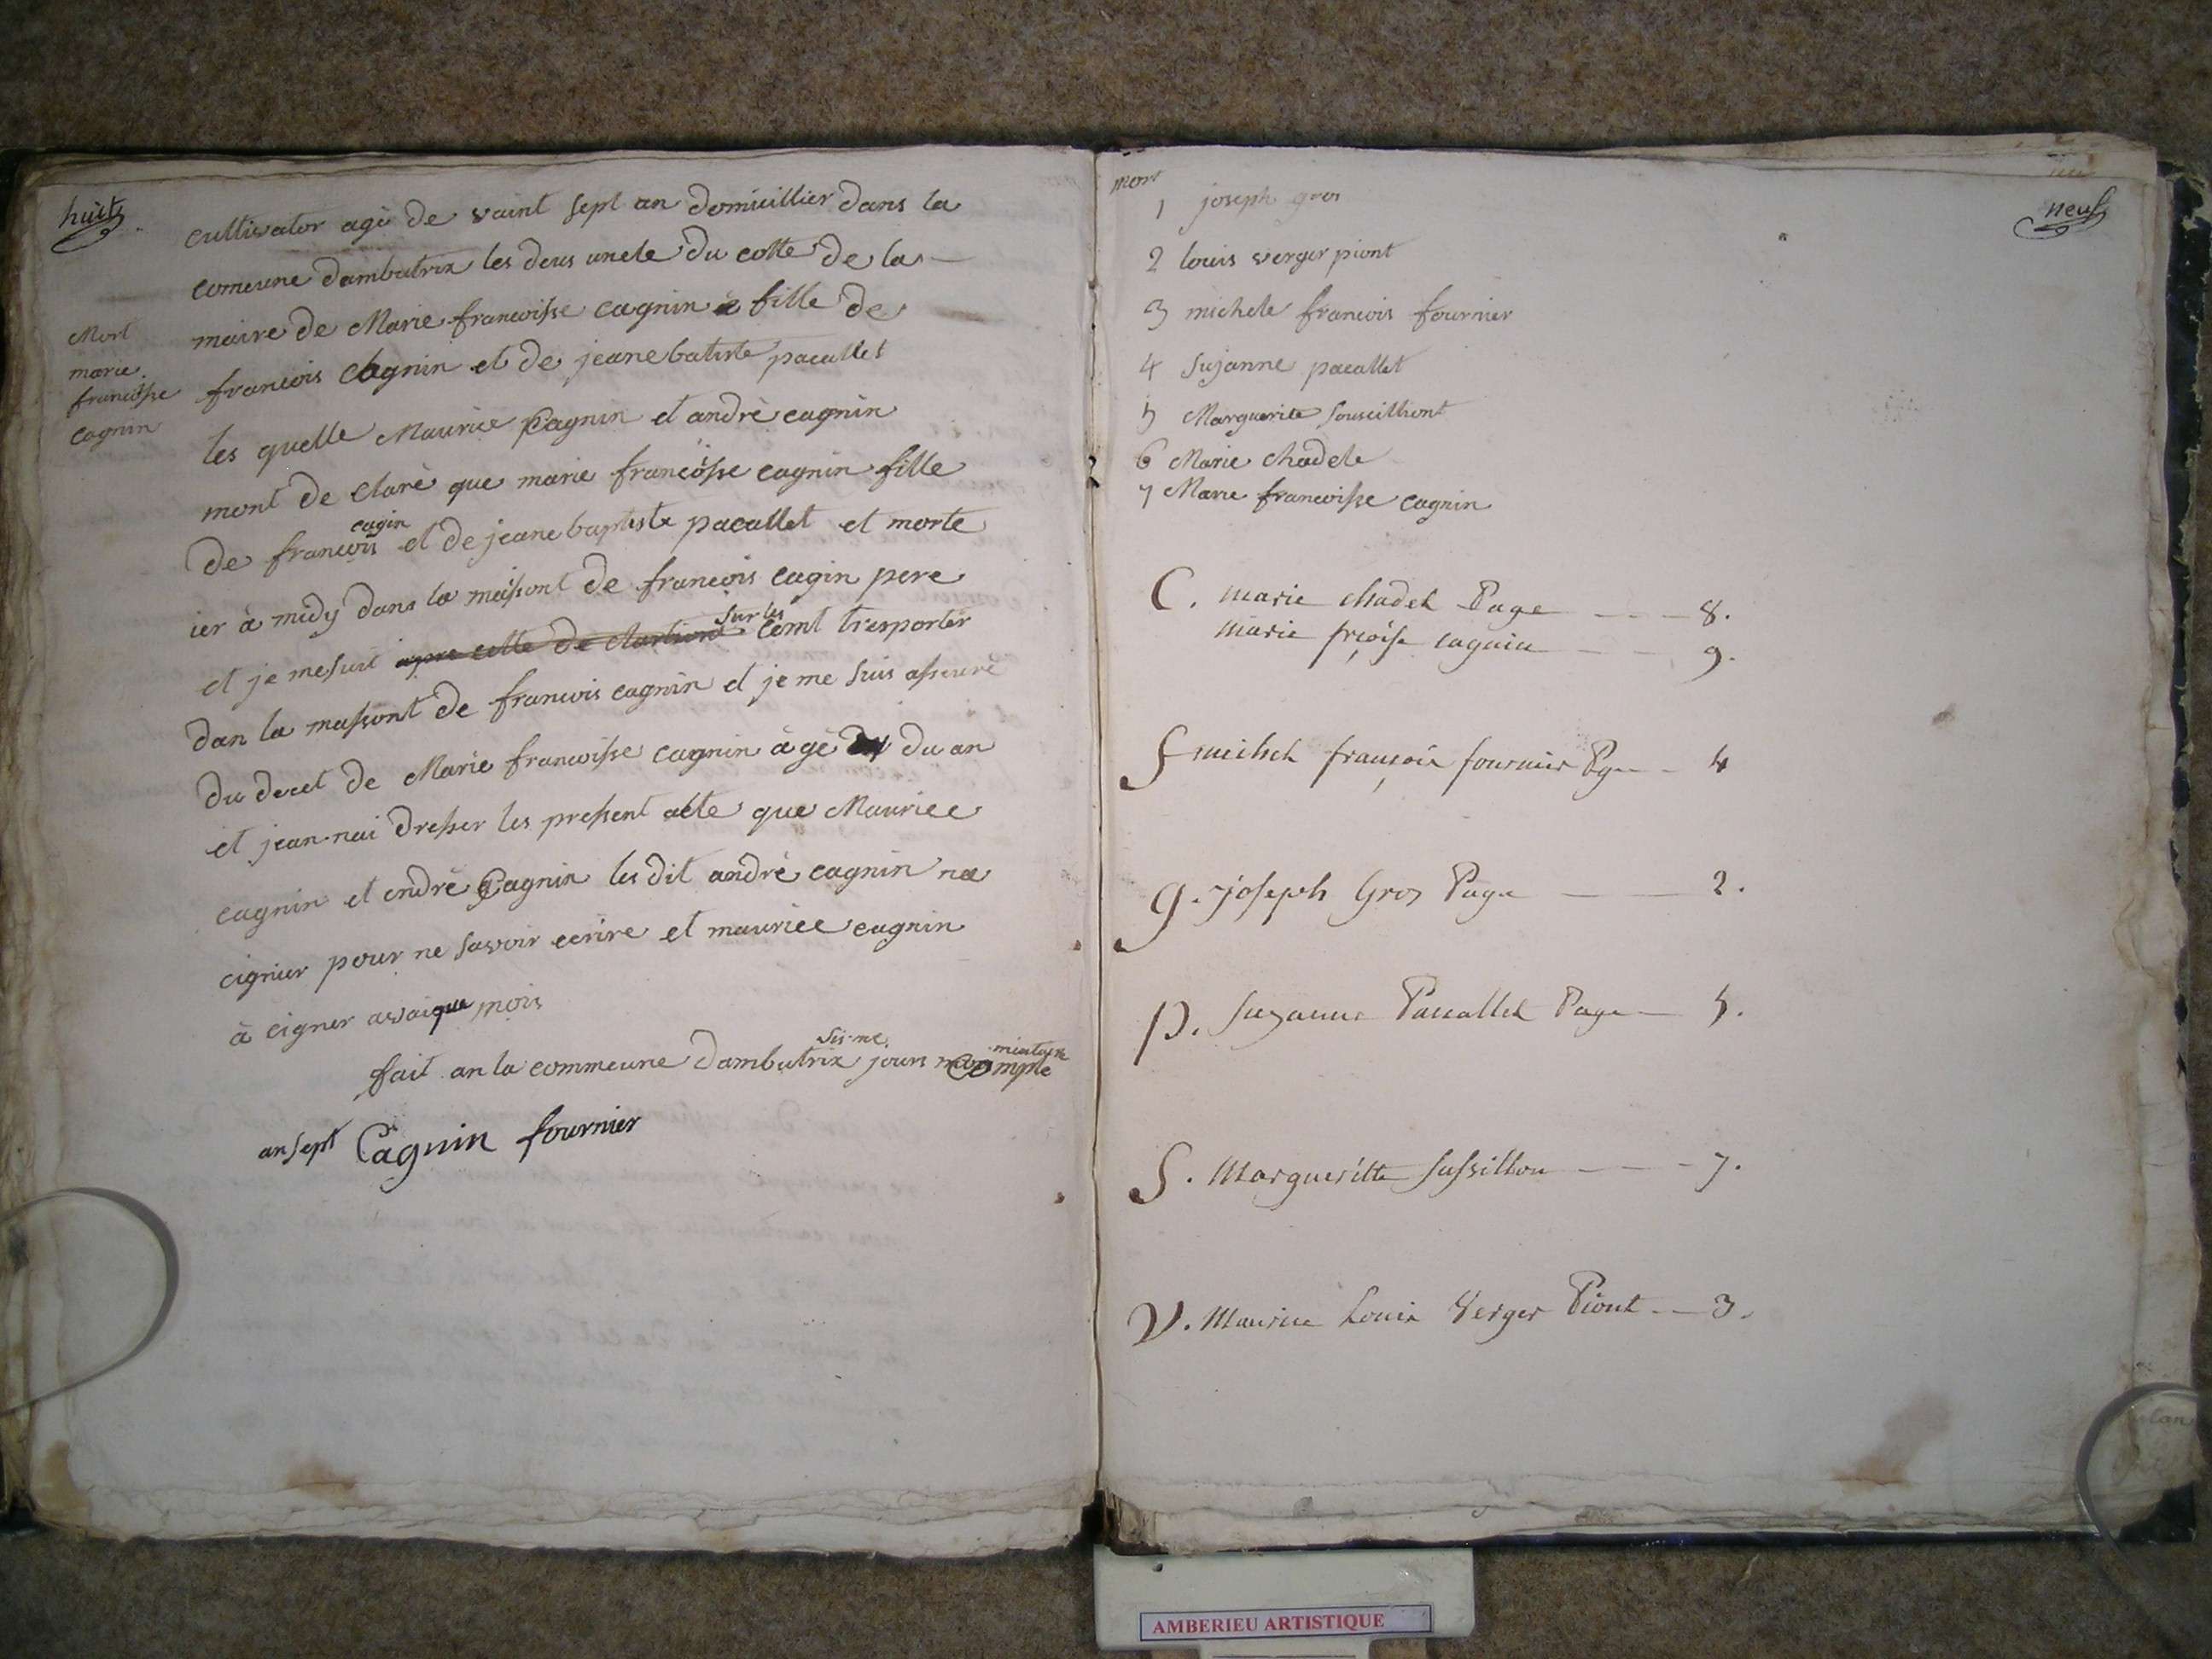 huit
cultivator agé de vaint sept an domicillier dans la
comeune dambutrix les deus uncle du cotte de la
maire de Marie francoisse cagnin fille de
francois Cagnin et de jeane batiste pacallet
Mort
marie
francoisse
cagnin
les quelle Maurice Cagnin et andrè cagnin
mont de clarè que marie francoisse cagnin fille
de francois cagin et de jeane baptiste pacallet et morte
ier à midy dans la maisont de francois cagin pere
et je me suit apre cette de clartiont sur les cemt tresporter
dan la massont de francois cagnin et je me suis assurè
du decet de Marie francoisse cagnin àgè du an
et jean nai dresser les present acte que Mauriee
cagnin et endrè Cagnin les dit andrè cagnin na
cignier pour ne savoir ecrire et mauriee cagnin
à cigner avaique mois
fait an la commeune dambutrix sis me jours
an sept Cagnin fournier
neuf
mort
1 joseph gros
2 louis verger piont
3 michele francois fournier
4 Sujanne pacallet
5 Marguerite souscilliont
6 Marie chadele
7 Marie francoisse cagnin
C. marie chadel Page 8.
marie frçoise cagnin 9.
f michel françois fournier Pge 4
g. joseph Gros Page 2.
p. Suzanne Pacallet Page 5.
S. Margueritte sussillon 7.
V. Maurice Louis Verger Piont 3.
AMBERIEU ARTISTIQUE